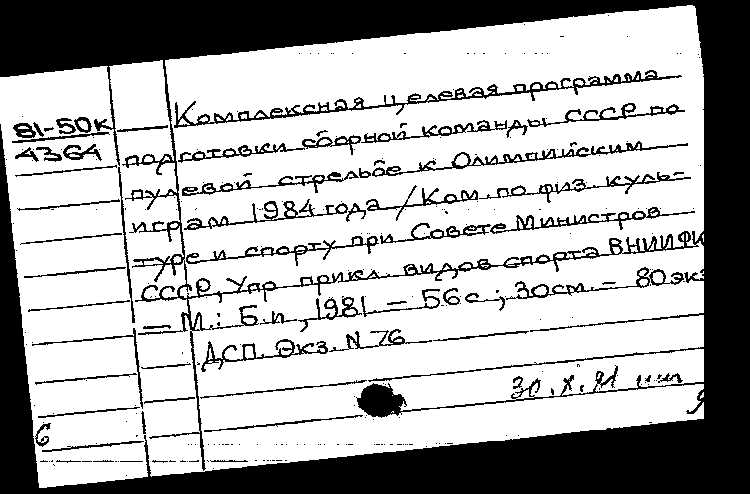 81-50к
4364
Комплексная целевая программа
подготовки сборной команды СССР по
пулевой стрельбе к Олимпийским
играм 1984 года / Ком. по физ. куль-
туре и спорту при Совете Министров
СССР, Упр прикл. видов спорта ВНИИФК
— М.: Б.и, 1981 – 56 с ; 30 см. – 80 экз
ДСП. Экз. N 76
30.X.81
6